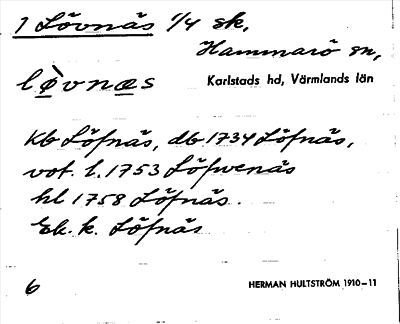 1 Lövnäs 1/4 sk,
Hammarö sn,
lòvnæs
Karlstads hd, Värmlands län
Kb Löfnäs, db 1734 Löfnäs,
vot. l. 1753 Löfwenäs
hl 1758 Löfnäs.
Ek. k. Löfnäs
6
HERMAN HULTSTRÖM 1910–11